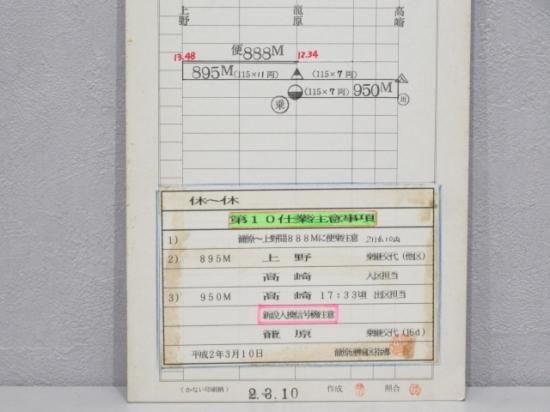 上野 籠原 高崎
便888M
13.48 12.34
895M (115×11両) (115×7両)
(115×7両) 950M
乗
休〜休
第10仕業注意事項
1) 籠原〜上野間888Mに便乗注意
2) 895M 上野 乗継交代(他区)
高崎 入区担当
3) 950M 高崎 17:33頃 出区担当
新設入換信号機注意
籠原 乗継交代(16d)
平成2年3月10日
2.3.10 作成 照合